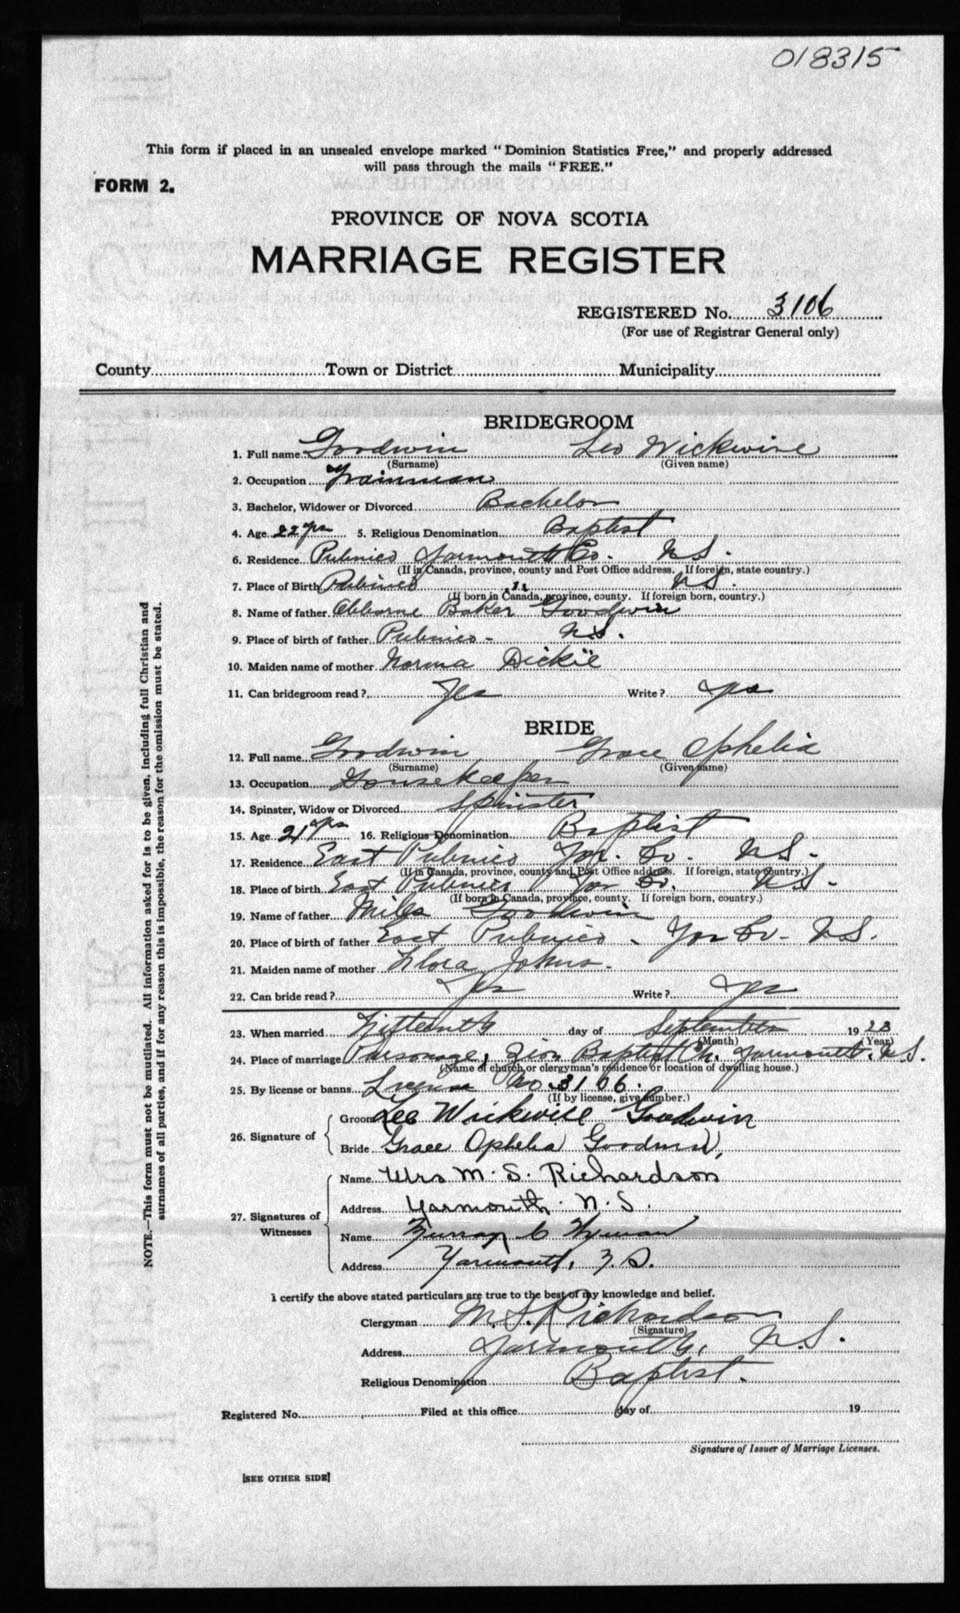 018315
This form if placed in an unsealed envelope marked "Dominion Statistics Free," and properly addressed
will pass through the mails "FREE."
FORM 2.
PROVINCE OF NOVA SCOTIA
MARRIAGE REGISTER
REGISTERED No. 3106
(For use of Registrar General only)
County Town or District Municipality
BRIDEGROOM
1. Full name Goodwin Leo Wickwire
(Surname) (Given name)
2. Occupation Trainman
3. Bachelor, Widower or Divorced Bachelor
4. Age 22 yrs 5. Religious Denomination Baptist
6. Residence Pubnico Yarmouth Co. N.S.
(If in Canada, province, county and Post Office address. If foreign, state country.)
7. Place of Birth Pubnico " N.S.
(If born in Canada, province, county. If foreign born, country.)
8. Name of father Baker Goodwin
9. Place of birth of father Pubnico - N.S.
10. Maiden name of mother Norma Dickie
11. Can bridegroom read? Yes Write? Yes
BRIDE
12. Full name Goodwin Grace Ophelia
(Surname) (Given name)
13. Occupation Housekeeper
14. Spinster, Widow or Divorced Spinster
15. Age 21 yrs 16. Religious Denomination Baptist
17. Residence East Pubnico Yar. Co. N.S.
(If in Canada, province, county and Post Office address. If foreign, state country.)
18. Place of birth East Pubnico Yar Co. N.S.
(If born in Canada, province, county. If foreign born, country.)
19. Name of father Miles Goodwin
20. Place of birth of father East Pubnico - Yar Co - N.S.
21. Maiden name of mother Flora Johns.
22. Can bride read? Yes Write? Yes
23. When married Fifteenth day of September 1923
(Month) (Year)
24. Place of marriage Parsonage, Zion Baptist Ch. Yarmouth. N.S.
(Name of church or clergyman's residence or location of dwelling house.)
25. By license or banns License No. 3106.
(If by license, give number.)
26. Signature of
Groom Leo Wickwire Goodwin
Bride Grace Ophelia Goodwin,
27. Signatures of Witnesses
Name Mrs M. S. Richardson
Address Yarmouth N.S.
Name Murray C Wyman
Address Yarmouth, N.S.
I certify the above stated particulars are true to the best of my knowledge and belief.
Clergyman M.S. Richardson
(Signature)
Address Yarmouth, N.S.
Religious Denomination Baptist.
Registered No. Filed at this office day of 19
Signature of Issuer of Marriage Licenses.
[SEE OTHER SIDE]
NOTE.—This form must not be mutilated. All information asked for is to be given, including full Christian and
surnames of all parties, and if for any reason this is impossible, the reason for the omission must be stated.